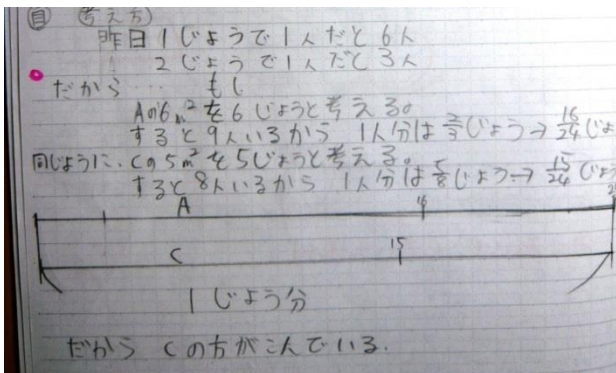 自 考え方
昨日1じょうで1人だと6人
2じょうで1人だと3人
だから…もし
Aの6m²を6じょうと考える。
すると9人いるから 1人分は2/3じょう→16/24じょ
同じように、Cの5m²を5じょうと考える。
すると8人いるから 1人分は5/8じょう→15/24じょう
A 16
C 15
1じょう分
だから Cの方がこんでいる.